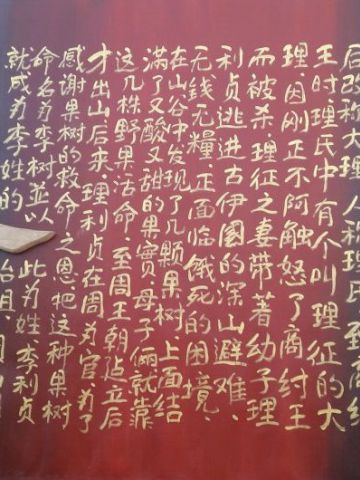 后改称大理。人称理氏至商纣
王时理氏中有个叫理征的大
理、因刚正不阿触怒了商纣王
而被杀、理征之妻带著幼子理
利贞逃进古伊國的深山避难、
无钱无糧、正面临饿死的困境、
在山谷中发现了几颗果树上面结
满了又酸又甜的果實母子俩就靠
这几株野果活命 至周王朝建立后
才出山后来、理利贞在周为官、为了
感谢果树的救命之恩、把这种果树
命名为李树並以此为姓李利贞
就成为李姓的始